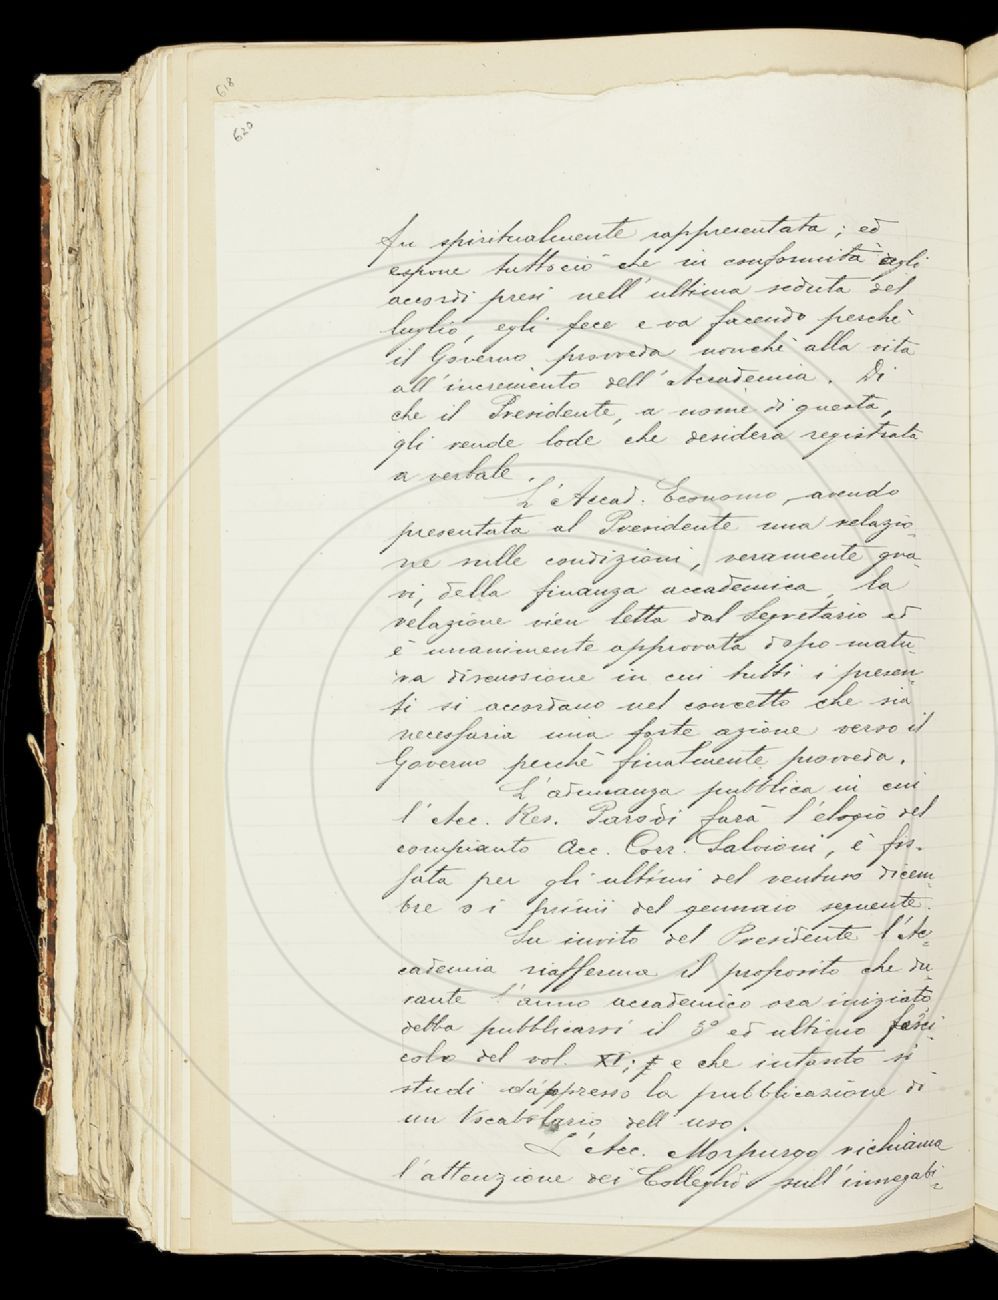 618
620
fu spiritualmente rappresentata; ed
espone tuttociò che in conformità agli
accordi presi nell'ultima seduta del
luglio, egli fece e va facendo perchè
il Governo provveda nonchè alla vita
all'incremento dell'Accademia. Di
che il Presidente, a nome di questa,
gli rende lode che desidera registrata
a verbale.
L'Accad. Economo, avendo
presentata al Presidente una relazio=
ne sulle condizioni, veramente gra=
vi, della finanza accademica, la
relazione vien letta dal Segretario ed
è unanimente approvata dopo matu=
ra discussione in cui tutti i presen=
ti si accordano nel concetto che sia
necessaria una forte azione verso il
Governo perchè finalmente provveda.
L'adunanza pubblica in cui
l'Acc. Res. Parodi farà l'elogio del
compianto Acc. Corr. Salvioni, è fis=
sata per gli ultimi del venturo dicem=
bre o i primi del gennaio seguente.
Su invito del Presidente l'Ac=
cademia riafferma il proposito che du=
rante l'anno accademico ora iniziato
debba pubblicarsi il 3º ed ultimo fasci=
colo del vol. XI; e che intanto si
studi dappresso la pubblicazione di
un Vocabolario dell'uso.
L'Acc. Morpurgo richiama
l'attenzione dei Colleghi sull'innegabi=